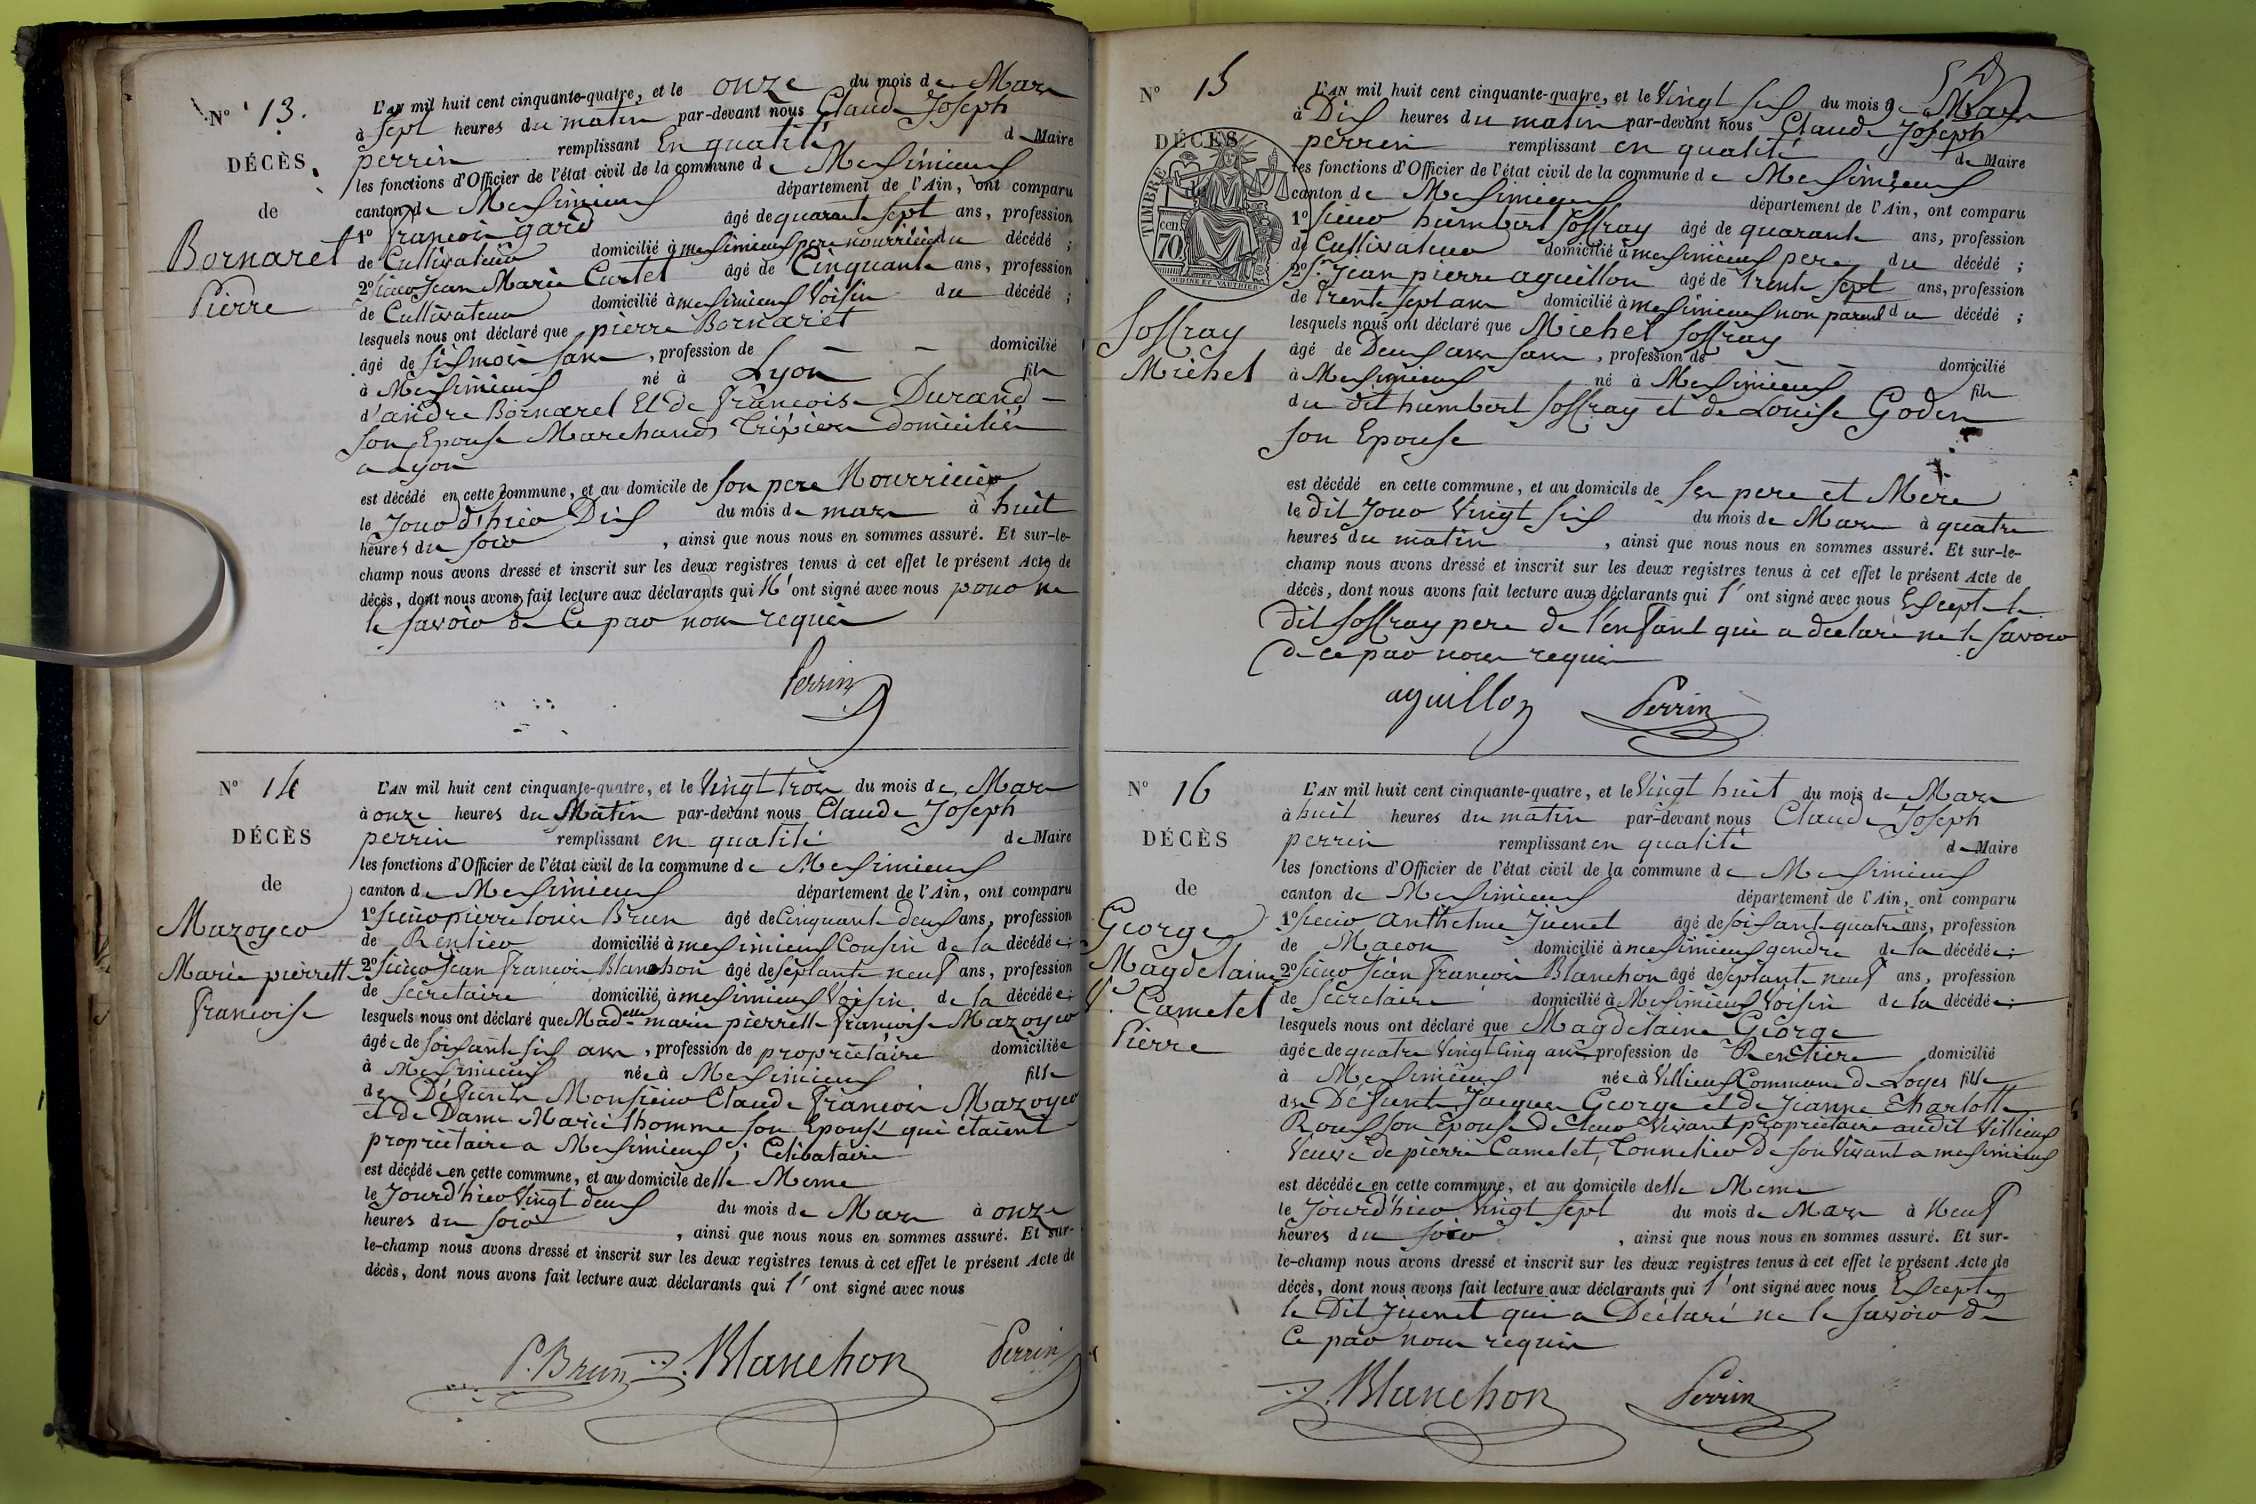 N° 13.
DÉCÈS
de
Bornaret
Pierre
L'AN mil huit cent cinquante-quatre, et le onze du mois de Mars
à sept heures du matin par-devant nous Claude Joseph
perrin remplissant En qualité de Maire
les fonctions d'Officier de l'état civil de la commune de Meximieux
canton de Meximieux département de l'Ain, ont comparu
1° françois gard âgé de quarante sept ans, profession
de Cultivateur domicilié à meximieux pere nourricier du décédé ;
2° sieur Jean Marie Curtet âgé de Cinquante ans, profession
de Cultivateur domicilié à meximieux Voisin du décédé ;
lesquels nous ont déclaré que pierre Bornaret
âgé de six mois sans , profession de — — domicilié
à Meximieux né à Lyon fils
d'andré Bornaret Et de françoise Durand —
son Epouse Marchands Tripiers domiciliés
a Lyon
est décédé en cette commune, et au domicile de son pere Nourricier
le Jour d'hier Dix du mois de mars à huit
heures du soir , ainsi que nous nous en sommes assuré. Et sur-le-
champ nous avons dressé et inscrit sur les deux registres tenus à cet effet le présent Acte de
décès, dont nous avons fait lecture aux déclarants qui N'ont signé avec nous pour ne
le savoir de Ce par nous requis
Perrin
N° 14
DÉCÈS
de
Mazoyer
Marie pierrette
françoise
L'AN mil huit cent cinquante-quatre, et le Vingt trois du mois de Mars
à onze heures du Matin par-devant nous Claude Joseph
perrin remplissant en qualité de Maire
les fonctions d'Officier de l'état civil de la commune de Meximieux
canton de Meximieux département de l'Ain, ont comparu
1° sieur pierre louis Brun âgé de Cinquante deux ans, profession
de Rentier domicilié à meximieux Cousin de la décédée ;
2° sieur Jean françois Blanchon âgé de septante neuf ans, profession
de secrétaire domicilié à meximieux Voisin de la décédée ;
lesquels nous ont déclaré que Mad.elle marie pierrette françoise Mazoyer
âgée de soixante six ans , profession de propriétaire domiciliée
à Meximieux née à Meximieux fille
des Défunts Monsieur Claude françois Mazoyer
et de Dame Marie Thomme son Epouse qui étaient
propriétaire a Meximieux ; Célibataire
est décédée en cette commune, et au domicile delle Meme
le Jourd'hier Vingt deux du mois de Mars à onze
heures du soir , ainsi que nous nous en sommes assuré. Et sur-
le-champ nous avons dressé et inscrit sur les deux registres tenus à cet effet le présent Acte de
décès, dont nous avons fait lecture aux déclarants qui l'ont signé avec nous
P. Brun Blanchon Perrin
N° 15
DÉCÈS
TIMBRE
70 cen
OUDINÉ ET VAUTHIER
Joffray
Michel
L'AN mil huit cent cinquante-quatre, et le Vingt six du mois de Mars
à Dix heures du matin par-devant nous Claude Joseph
perrin remplissant en qualité de Maire
les fonctions d'Officier de l'état civil de la commune de Meximieux
canton de Meximieux département de l'Ain, ont comparu
1° sieur humbert Joffray âgé de quarante ans, profession
de Cultivateur domicilié à meximieux pere du décédé ;
2° s.r Jean pierre aguillon âgé de Trente sept ans, profession
de Trente sept ans domicilié à meximieux non parent du décédé ;
lesquels nous ont déclaré que Michel Joffray
âgé de Deux ans sans , profession de — — domicilié
à Meximieux né à Meximieux fils
du dit humbert Joffray et de Louise Goden
son Epouse
est décédé en cette commune, et au domicile de ses pere et Mère
le dit Jour Vingt six du mois de Mars à quatre
heures du matin , ainsi que nous nous en sommes assuré. Et sur-le-
champ nous avons dressé et inscrit sur les deux registres tenus à cet effet le présent Acte de
décès, dont nous avons fait lecture aux déclarants qui l'ont signé avec nous Excepté le
dit Joffray pere de l'enfant qui a declaré ne le savoir
de ce par nous requis
aguillon Perrin
N° 16
DÉCÈS
de
George
Magdelaine
V. Cametet
Pierre
L'AN mil huit cent cinquante-quatre, et le Vingt huit du mois de Mars
à huit heures du matin par-devant nous Claude Joseph
perrin remplissant en qualité de Maire
les fonctions d'Officier de l'état civil de la commune de Meximieux
canton de Meximieux département de l'Ain, ont comparu
1° sieur Anthelme Juenet âgé de soixante quatre ans, profession
de Maçon domicilié à meximieux gendre de la décédée ;
2° sieur Jean françois Blanchon âgé de septante neuf ans, profession
de secretaire domicilié à Meximieux Voisin de la décédée ;
lesquels nous ont déclaré que Magdelaine George
âgée de quatre Vingt Cinq ans profession de Rentiere domicilié
à Meximieux née à Villieux Commune de Loyes fille
des Défunts Jacques George et de Jeanne Charlotte
Roux son Epouse de leur Vivant propriétaire audit Villieux
Veuve de pierre Cametet, Tonnelier De son Vivant a meximieux
est décédée en cette commune, et au domicile delle Meme
le Jourd'hier Vingt sept du mois de Mars à Neuf
heures du soir , ainsi que nous nous en sommes assuré. Et sur-
le-champ nous avons dressé et inscrit sur les deux registres tenus à cet effet le présent Acte de
décès, dont nous avons fait lecture aux déclarants qui l'ont signé avec nous Excepté
le Dit Juenet qui a Déclaré ne le savoir de
Ce par nous requis
Blanchon Perrin